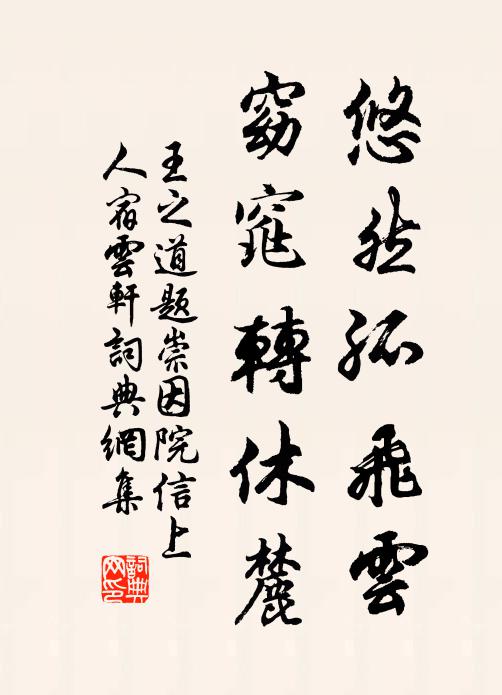 悠然孤飛雲
窈窕轉休麓
王之道題崇因院信上
人宿雲軒詞典網集
詞典
网印